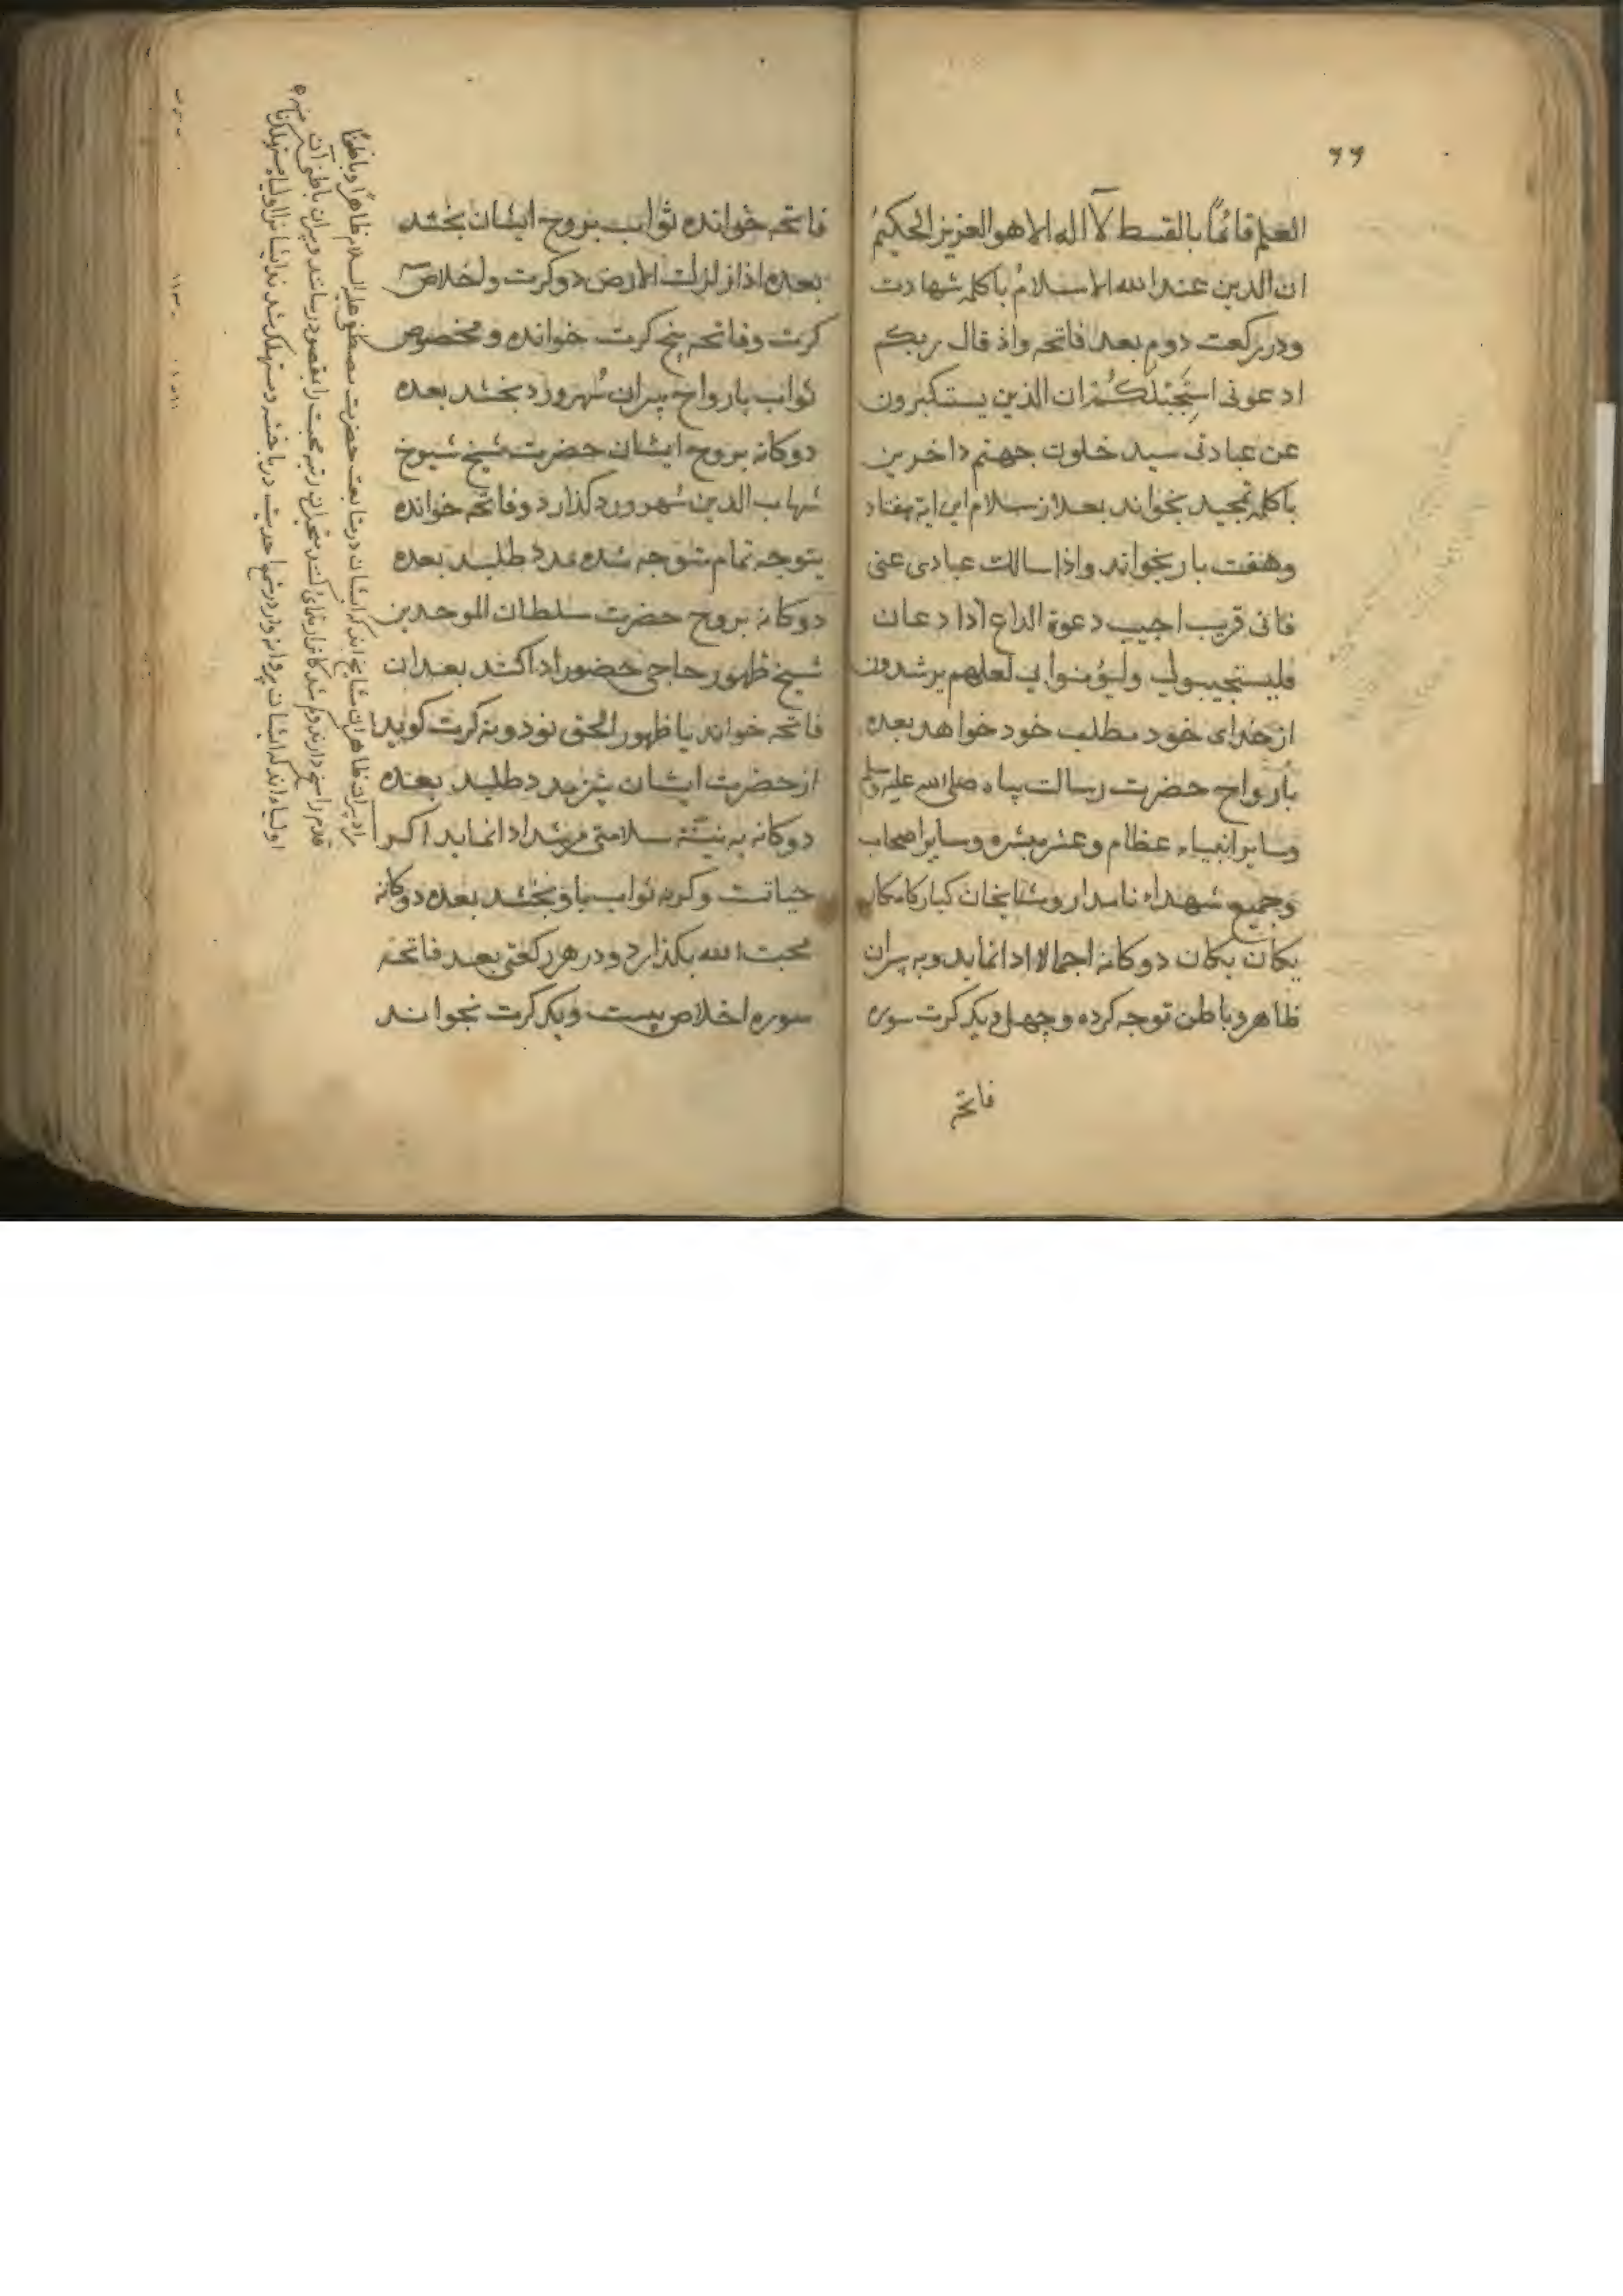 ۶۶
العلم قائمًا بالقسط لآ اله الا هو العزیز الحکیمُ
ان الدین عند الله الاسلامُ باکلمه شهادت
ودر رکعت دوم بعد فاتحه واذ قال ربکم
ادعونی استَجِبْلکُمْ ان الذین یستکبرون
عن عبادتی سید خلون جهنم داخرین
باکلمه تمجید بخواند بعد از سلام این ایة هفتاد
وهفت بار بخواند واذا سالک عبادی عنی
فانی قریب اجیب دعوة الداع اذا دعان
فلیستجیبولی ولیؤمنوا بی لعلهم یرشدون
از خدای خود مطلب خود خواهد بعده
بارواح حضرت رسالت پناه صلی الله علیه وسلم
وسایر انبیاء عظام وعشره مبشره وسایر اصحاب
وجمیع شهداء نامدار ومشایخان کبار کامکار
یکان یکان دوکانه اجمالا ادا نماید وبه پیران
ظاهر وباطن توجه کرده وچهل ویک کرت سوره
فاتحه
فاتحه خوانده ثواب بروح ایشان بخشد
بعده اذا زلزلت الارض دوکرت واخلاص سه
کرت وفاتحه پنج کرت خوانده ومخصوص
ثواب بارواح پیران سُهرورد بخشد بعده
دوکانه بروح ایشان حضرت شیخ شیوخ
شهاب الدین سهرورد کذارد وفاتحه خوانده
بتوجه تمام متوجه شده مدد طلبد بعده
دوکانه بروح حضرت سلطان الموحدین
شیخ ظهور حاجی حضور ادا کند بعد ان
فاتحه خواند یا ظهور الحق نود ونه کرت کوید
از حضرت ایشان نیز مدد طلبد بعده
دوکانه به نیّتة سلامتی مرشد ادا نماید اکر
حیاتست وکرنه ثواب باو بخشد بعده دوکانه
محبت الله بکذارد ودر هر رکعتی بعد فاتحه
سوره اخلاص بیست ویک کرت بخواند
مراد پیران ظاهر ان مشایخ اند که ایشان در متابعت حضرت مصطفی علیه السلام ظاهرًا وباطنًا
قدم راسخ دارند وکم شدکانرا رهنمائی کنند متحیران رتبه محبت را بمقصود رسانند وپیران باطن آن
اولیاء اند که ایشان پروانه وار در شمع احدیت در باخته ومستهلک شدند